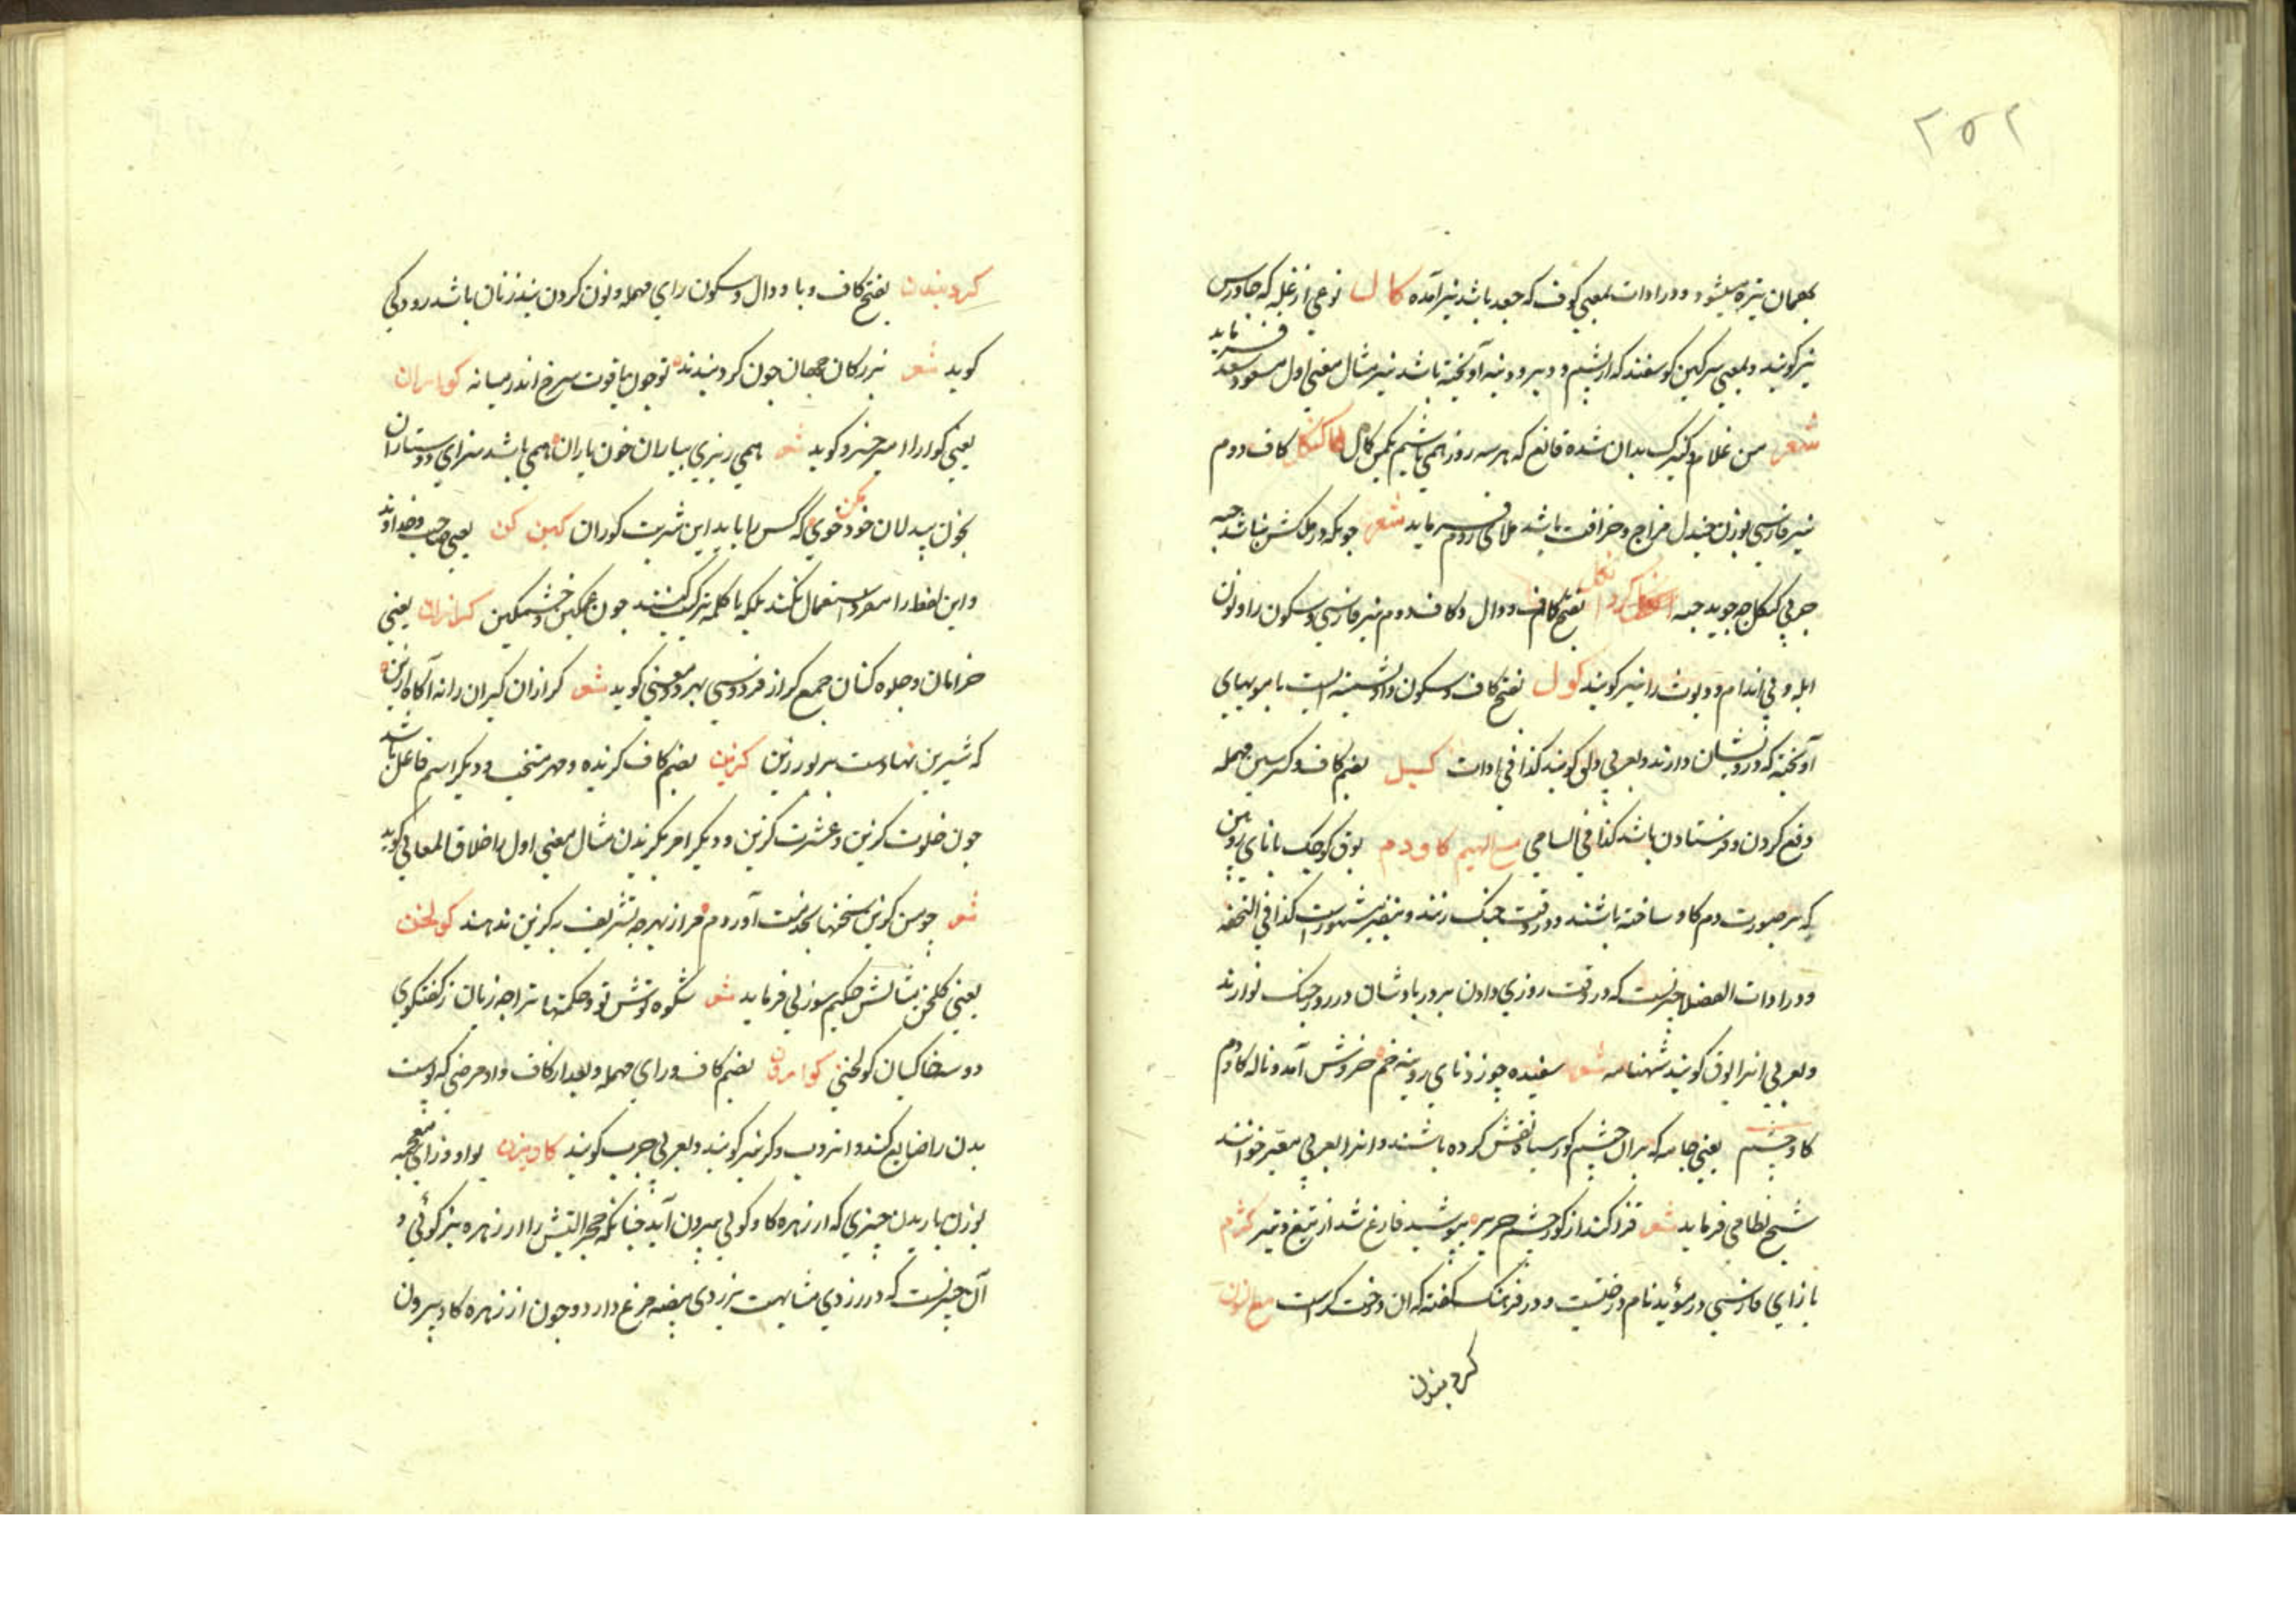 ۲۵۲
بمهمان نیزه میشود و در ادات بمعنی کوف که جعد باشد نیز آمده کال نوعی از غله که جاورس
نیز کویند و بمعنی سرکین کوسفند که از پشم و دنبه آویخته باشد نیز مثال معنی اول مسعود سعد فرماید
شعر من غلام و کنیزک بدان شده قانع که هر سه روز همی باشیم بکمن کال کاف دوم
نیز فارسی بوزن مزاج و ظرافت باشد ملای روم فرماید شعر چونکه در ملکش نباشد حبه
جز پی کنکل چه جوید حبه بفتح کاف و دال و کاف دوم نیز فارسی و سکون را و نون
ابله و بی اندام و دیوث را نیز کویند کول بفتح کاف و سکون واو پشمینه ایست با مویهای
آویخته که درویشان دارند و بعربی دلق کویند کذا فی ادات کسیل بضم کاف و کسر سین مهمله
دفع کردن و فرستادن باشد کذا فی السامی مع المیم کاودم بوق کوچک یا نای رویین
که بر صورت دم کاو ساخته باشند و در وقت جنک زنند و بنفیر مشهور است کذا فی التحفه
و در ادات الفضلا چیزیست که در وقت روزی دادن بر در پادشاهان در روز جنک نوازند
و بعربی انرا بوق کویند شهنامه شعر سفیده چو زد نای رویینه خم خروش آمد و ناله کاودم
کاوچشم یعنی جامه که بر آن چشم کور سیاه نقش کرده باشند و انرا بعربی معیّر خوانند
شیخ نظامی فرماید شعر قزاکند از کورچشم حریر بپوشید فارغ شد از تیغ و تیر کژم
با زای فارسی در مؤید نام درختیست و در فرهنک کفته که ان درخت کز است مع النون
کردبندن
کردبندن بفتح کاف و با و دال و سکون رای مهمله و نون کردن بند زنان باشد رودکی
کوید شعر بزرکان جهان چون کردبندند تو چون یاقوت سرخ اندر میانه کواران
یعنی کوارا امیر خسرو کوید شعر همی ریزی بیاران خون یاران همی باشد سزای دوستاران
بخون بیدلان خود خوی مکن که کس را باید این شربت کوران کین کن یعنی صاحب و خداوند
و این لفظ را مفرد استعمال نکنند بلکه با کلمه ترکیب کنند چون غمکین و خشمکین کرازان یعنی
خرامان و جلوه کنان جمع کراز فردوسی بهر دو معنی کوید شعر کرازان کیران را نه آکاه ازین
که شیرین نهادست بر بور زین کزین بضم کاف کزیده و مهر منتخب و دیکر اسم فاعل باشد
چون خلوت کزین و عشرت کزین و دیکر امر بکزیدن مثال معنی اول را خلاق المعانی کوید
شعر چو من کزین سخنها بخدمت آوردم مرا ز بهر چه تشریف به کزین ندهند کولخن
یعنی کلخن مثالش حکیم سوزنی فرماید شعر شکوه تو و حکمتها ترا چه زیان ز کفتکوی
دو سه خاکیان کولخنی کوامرن بضم کاف و رای مهمله و بعد از کاف واو مرضی که پوست
بدن را ضایع کند و انرا دروب و کر نیز کویند و بعربی جرب کویند کاویزن بواو و زای معجمه
بوزن باریدن چیزی که از زهره کاو کوئی بیرون آید چنانکه حجر التیس را از زهره بز کوئی و
آن چیزیست که در زردی مشابهت بزردی بیضه مرغ دارد و چون از زهره کاو بیرون